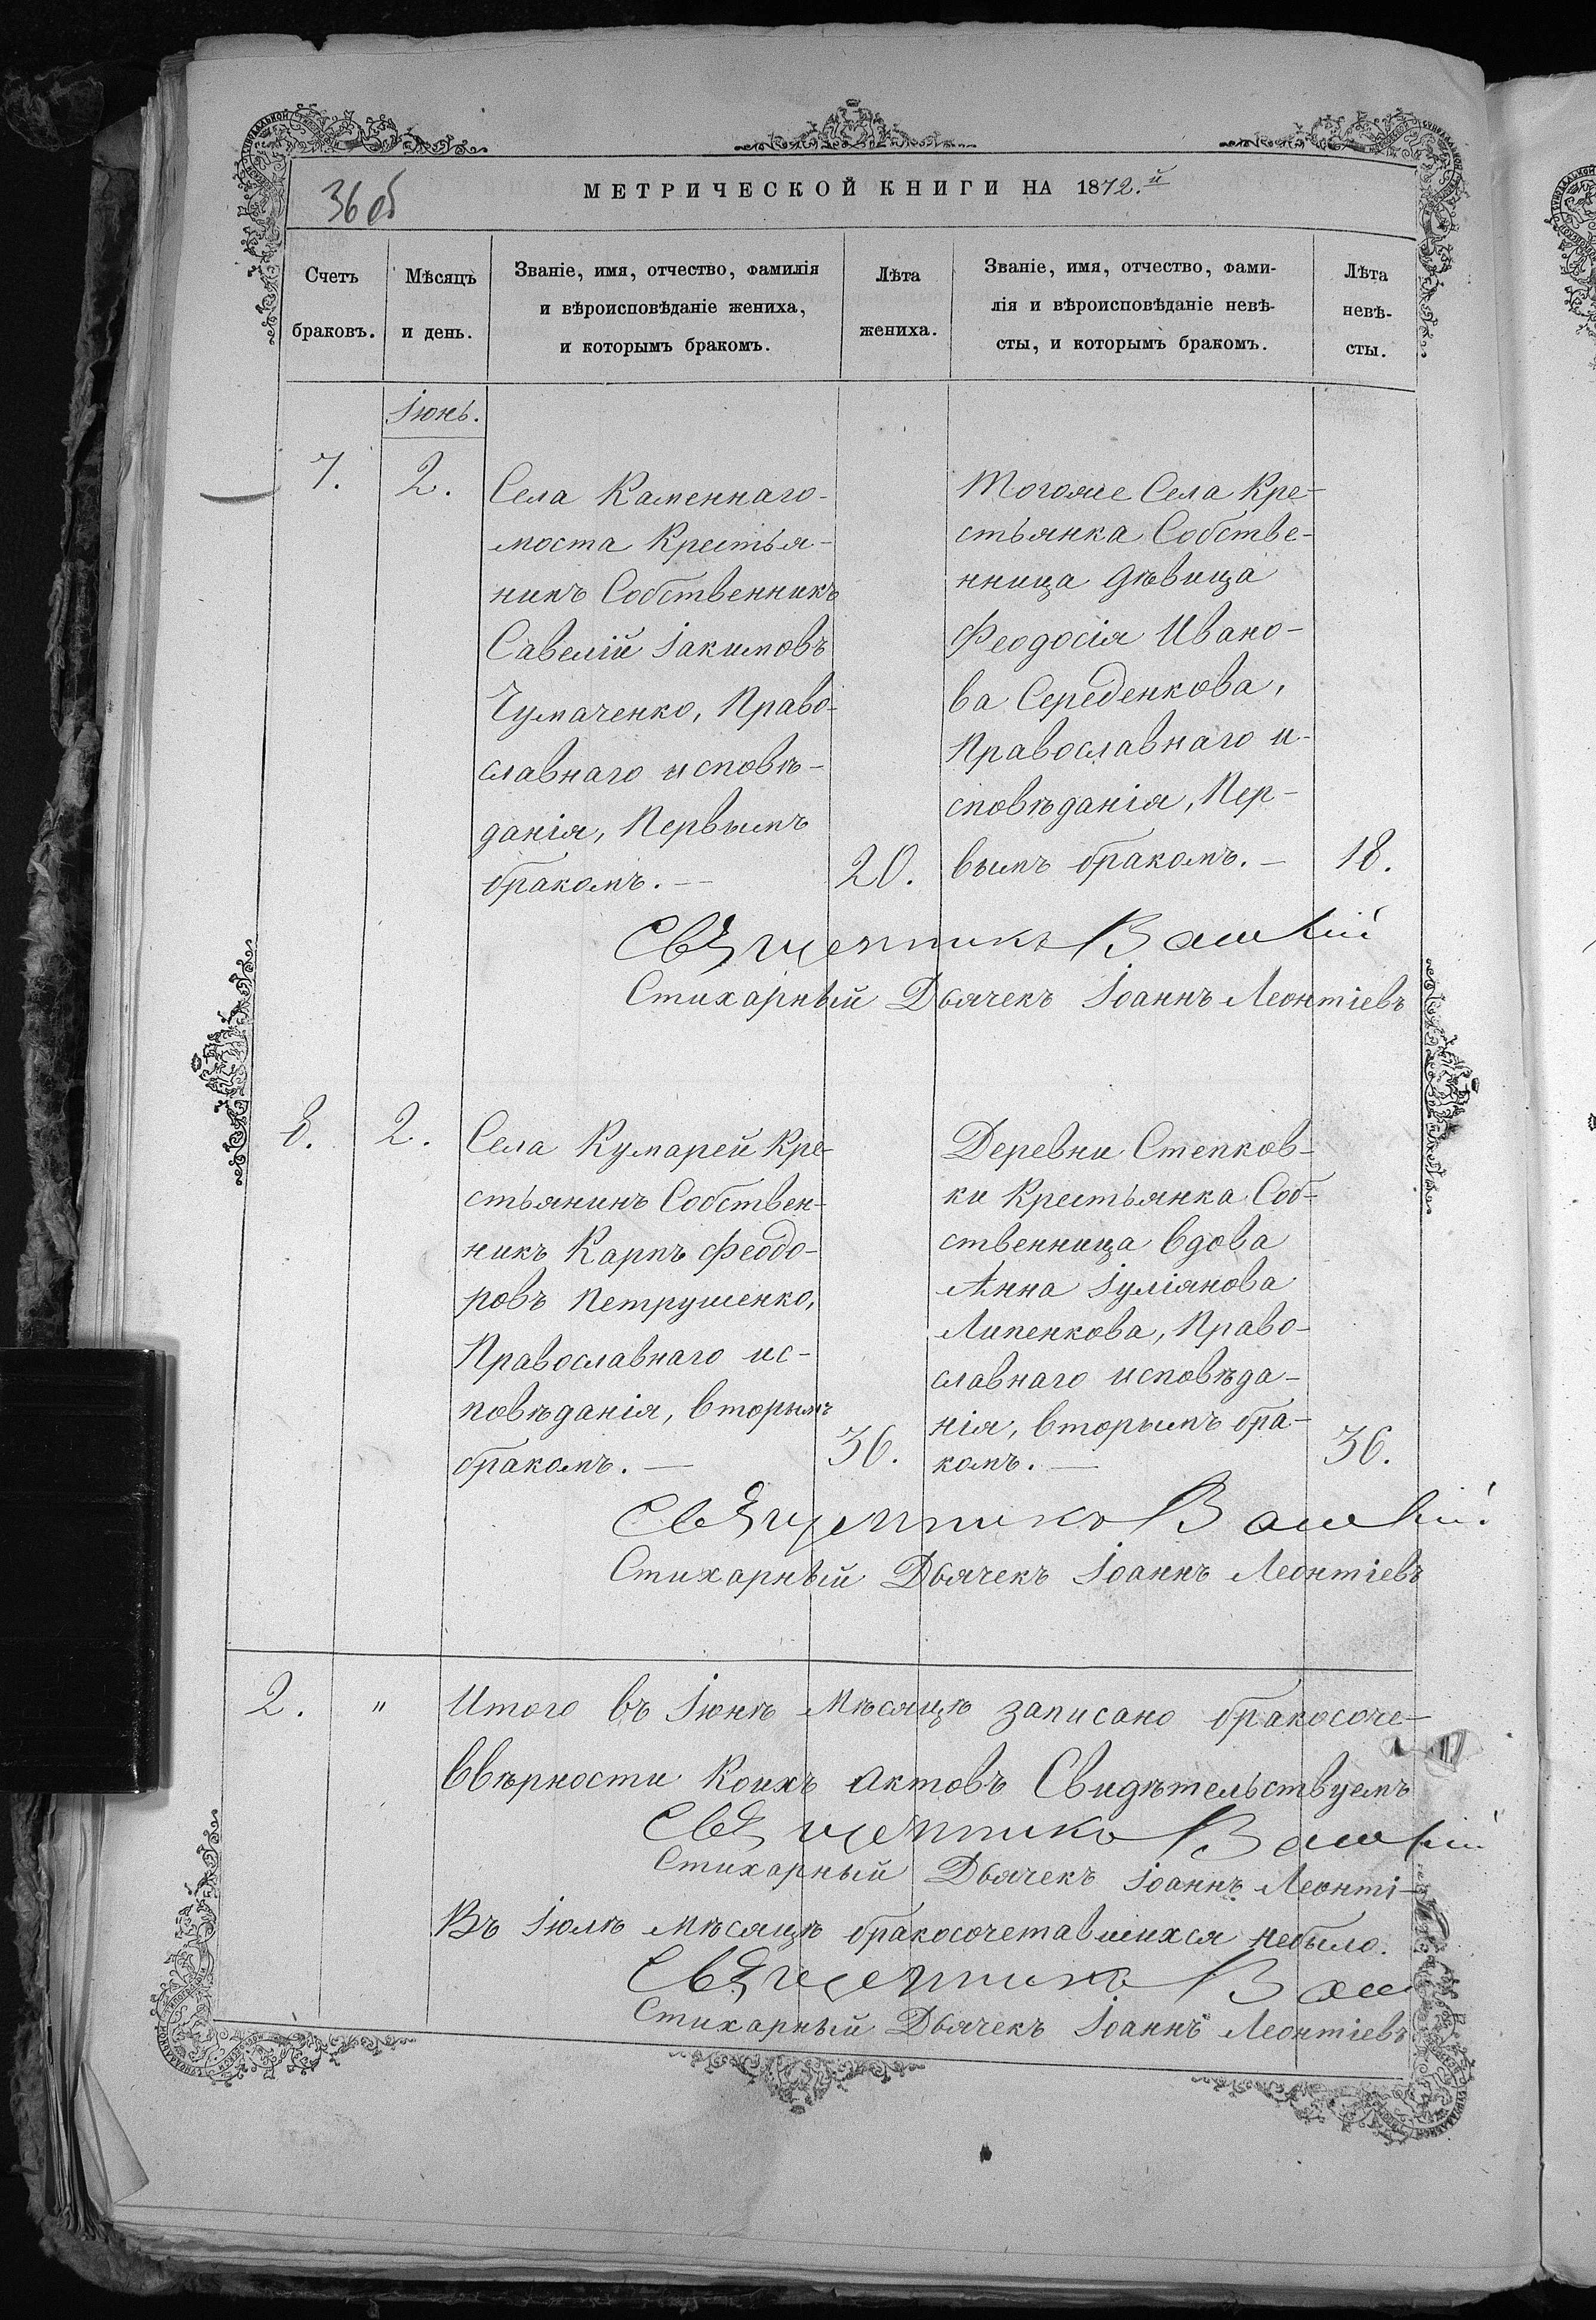 36об
МЕТРИЧЕСКОЙ КНИГИ НА 1872.й
Счетъ браковъ.
Мѣсяцъ и день.
Званіе, имя, отчество, фамилія
и вѣроисповѣданіе жениха,
и которымъ бракомъ.
Лѣта жениха.
Званіе, имя, отчество, фами-
лія и вѣроисповѣданіе невѣ-
сты, и которымъ бракомъ.
Лѣта невѣ-
сты.
Іюнь.
7.
2.
Села Каменнаго-
моста Крестья-
нинъ Собственникъ
Савелій Іакимовъ
Чумаченко, Право-
славнаго исповѣ-
данія, Первымъ
бракомъ. —
20.
Тогоже Села Кре-
стьянка Собстве-
нница Дѣвица
Феодосія Ивано-
ва Середенкова,
Православнаго и-
сповѣданія, Пер-
вымъ бракомъ. —
18.
Священникъ
Стихарный Дьячекъ Іоаннъ Леонтіевъ
8.
2.
Села Кумарей Кре-
стьянинъ Собствен-
никъ Карпъ Феодо-
ровъ Петрушенко,
Православнаго ис-
повѣданія, вторымъ
бракомъ. —
36.
Деревни Степков-
ки Крестьянка Соб-
ственница вдова
Анна Іуліянова
Липенкова, Право-
славнаго исповѣда-
нія, вторымъ бра-
комъ. —
36.
Священникъ
Стихарный Дьячекъ Іоаннъ Леонтіевъ
2.
"
Итого въ Іюнѣ Мѣсяцѣ записано бракосоче-
Ввѣрности Коихъ Актовъ Свидѣтельствуемъ
Священникъ
Стихарный Дьячекъ Іоаннъ Леонті-
Въ Іюлѣ мѣсяцѣ бракосочетавшихся небыло.
Священникъ
Стихарный Дьячекъ Іоаннъ Леонтіевъ